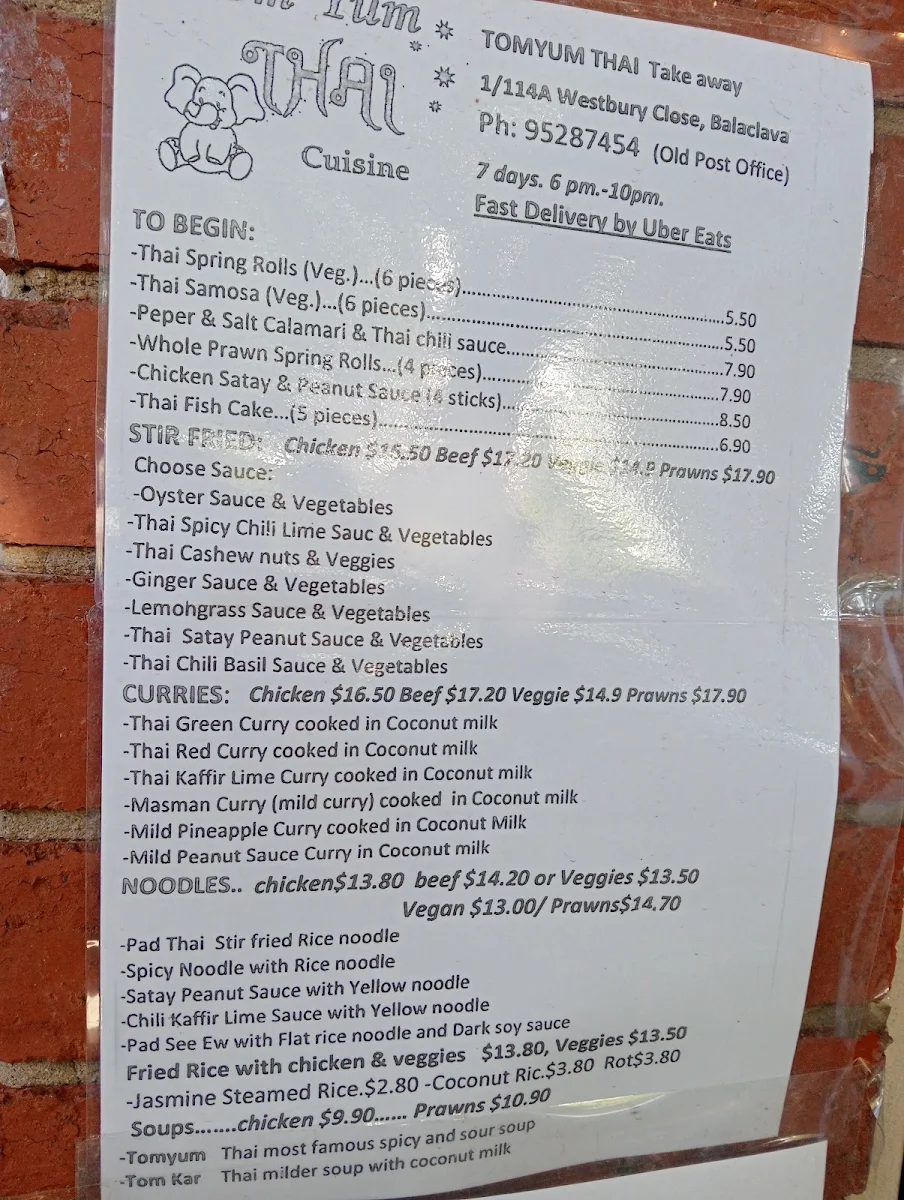 Yum
THAI
Cuisine
TOMYUM THAI Take away
1/114A Westbury Close, Balaclava
Ph: 95287454 (Old Post Office)
7 days. 6 pm.-10pm.
Fast Delivery by Uber Eats
TO BEGIN:
-Thai Spring Rolls (Veg.)...(6 pieces)..........5.50
-Thai Samosa (Veg.)...(6 pieces)..........5.50
-Peper & Salt Calamari & Thai chili sauce..........7.90
-Whole Prawn Spring Rolls...(4 pieces)..........7.90
-Chicken Satay & Peanut Sauce (4 sticks)..........8.50
-Thai Fish Cake...(5 pieces)..........6.90
STIR FRIED: Chicken $16.50 Beef $17.20 Veggie $14.9 Prawns $17.90
Choose Sauce:
-Oyster Sauce & Vegetables
-Thai Spicy Chili Lime Sauc & Vegetables
-Thai Cashew nuts & Veggies
-Ginger Sauce & Vegetables
-Lemohgrass Sauce & Vegetables
-Thai Satay Peanut Sauce & Vegetables
-Thai Chili Basil Sauce & Vegetables
CURRIES: Chicken $16.50 Beef $17.20 Veggie $14.9 Prawns $17.90
-Thai Green Curry cooked in Coconut milk
-Thai Red Curry cooked in Coconut milk
-Thai Kaffir Lime Curry cooked in Coconut milk
-Masman Curry (mild curry) cooked in Coconut milk
-Mild Pineapple Curry cooked in Coconut Milk
-Mild Peanut Sauce Curry in Coconut milk
NOODLES.. chicken$13.80 beef $14.20 or Veggies $13.50
Vegan $13.00/ Prawns$14.70
-Pad Thai Stir fried Rice noodle
-Spicy Noodle with Rice noodle
-Satay Peanut Sauce with Yellow noodle
-Chili Kaffir Lime Sauce with Yellow noodle
-Pad See Ew with Flat rice noodle and Dark soy sauce
Fried Rice with chicken & veggies $13.80, Veggies $13.50
-Jasmine Steamed Rice.$2.80 -Coconut Ric.$3.80 Rot$3.80
Soups.......chicken $9.90...... Prawns $10.90
-Tomyum Thai most famous spicy and sour soup
-Tom Kar Thai milder soup with coconut milk